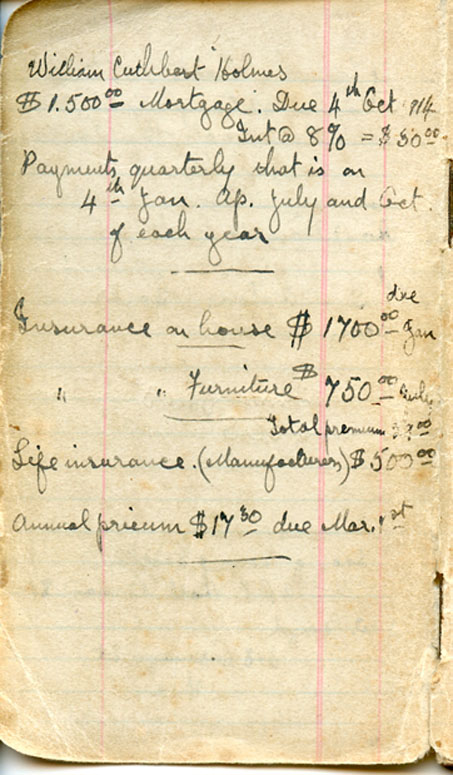 William Cuthbert Holmes
$1.500.00 Mortgage. Due 4th Oct 914
Int @ 8% = $30.00
Payments quarterly that is on
4th Jan. Ap. July and Oct.
of each year
due
Insurance on house $1700.00 Jan
" " Furniture $750.00 July
Total premium 00
Life insurance. (Manufacturers) $500.00
Annual pricum $17.30 due Mar. 1st